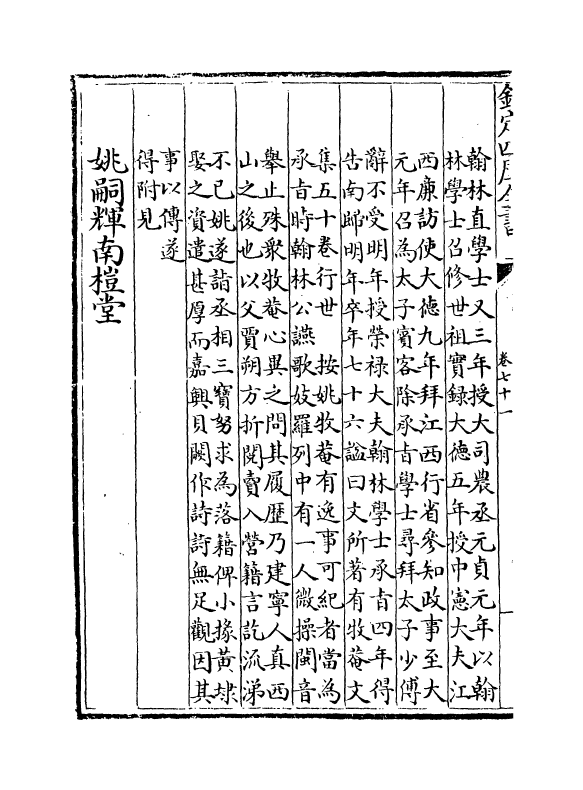 欽定四庫全書
卷七十一
翰林直學士又三年授大司農丞元貞元年以翰
林學士召修世祖實録大徳五年授中憲大夫江
西廉訪使大徳九年拜江西行省參知政事至大
元年召為太子賓客除承㫖學士尋拜太子少傅
辭不受明年授榮禄大夫翰林學士承㫖四年得
告南歸明年卒年七十六諡曰文所著有牧菴文
集五十卷行世　按姚牧菴有逸事可紀者當為
承㫖時翰林公讌歌妓羅列中有一人微操閩音
舉止殊衆牧菴心異之問其履歴乃建寧人真西
山之後也以父賈朔方折閲賣入營籍言訖流涕
不已姚遂詣丞相三寶努求為落籍俾小掾黄埭
娶之資遣甚厚而嘉興貝闕作詩詩無足觀因其
事以傳遂
得附見
姚嗣輝南榿堂